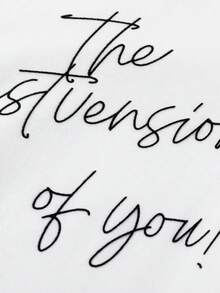 The
st Version
of you!